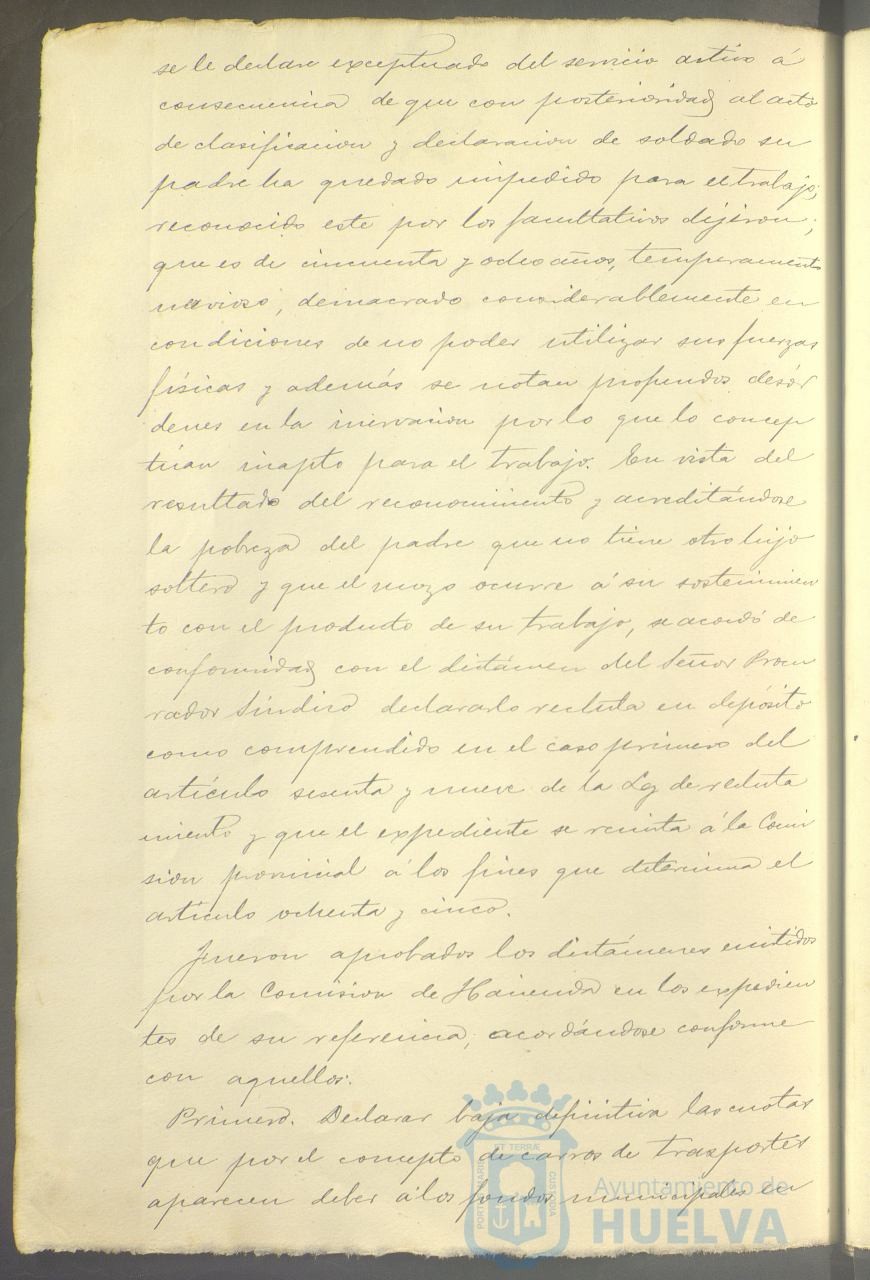 se le declare exceptuado del servicio activo á
consecuencia de que con posterioridad al acto
de clasificacion y declaracion de soldado su
padre ha quedado impedido para el trabajo;
reconocido este por los facultativos dijeron;
que es de cincuenta y ocho años, temperamento
nervioso, demacrado considerablemente en
condiciones de no poder utilizar sus fuerzas
físicas y además se notan profundos desór
denes en la inervacion por lo que lo concep
túan inapto para el trabajo. En vista del
resultado del reconocimiento y acreditándose
la pobreza del padre que no tiene otro hijo
soltero y que el mozo ocurre á su sostenimien
to con el producto de su trabajo, se acordó de
conformidad con el dictámen del Señor Procu
rador Síndico declararlo recluta en depósito
como comprendido en el caso primero del
artículo sesenta y nueve de la Ley de recluta
miento y que el expediente se remita á la Comi
sion provincial á los fines que determina el
artículo ochenta y cinco.
Fueron aprobados los dictámenes emitidos
por la Comision de Hacienda en los expedien
tes de su referencia, acordándose conforme
con aquellos:
Primero. Declarar baja definitiva las cuotas
que por el concepto de carros de trasportes
aparecen deber á los fondos municipales en
PORTUS MARIS ET TERRÆ CUSTODIA
Ayuntamiento de
HUELVA